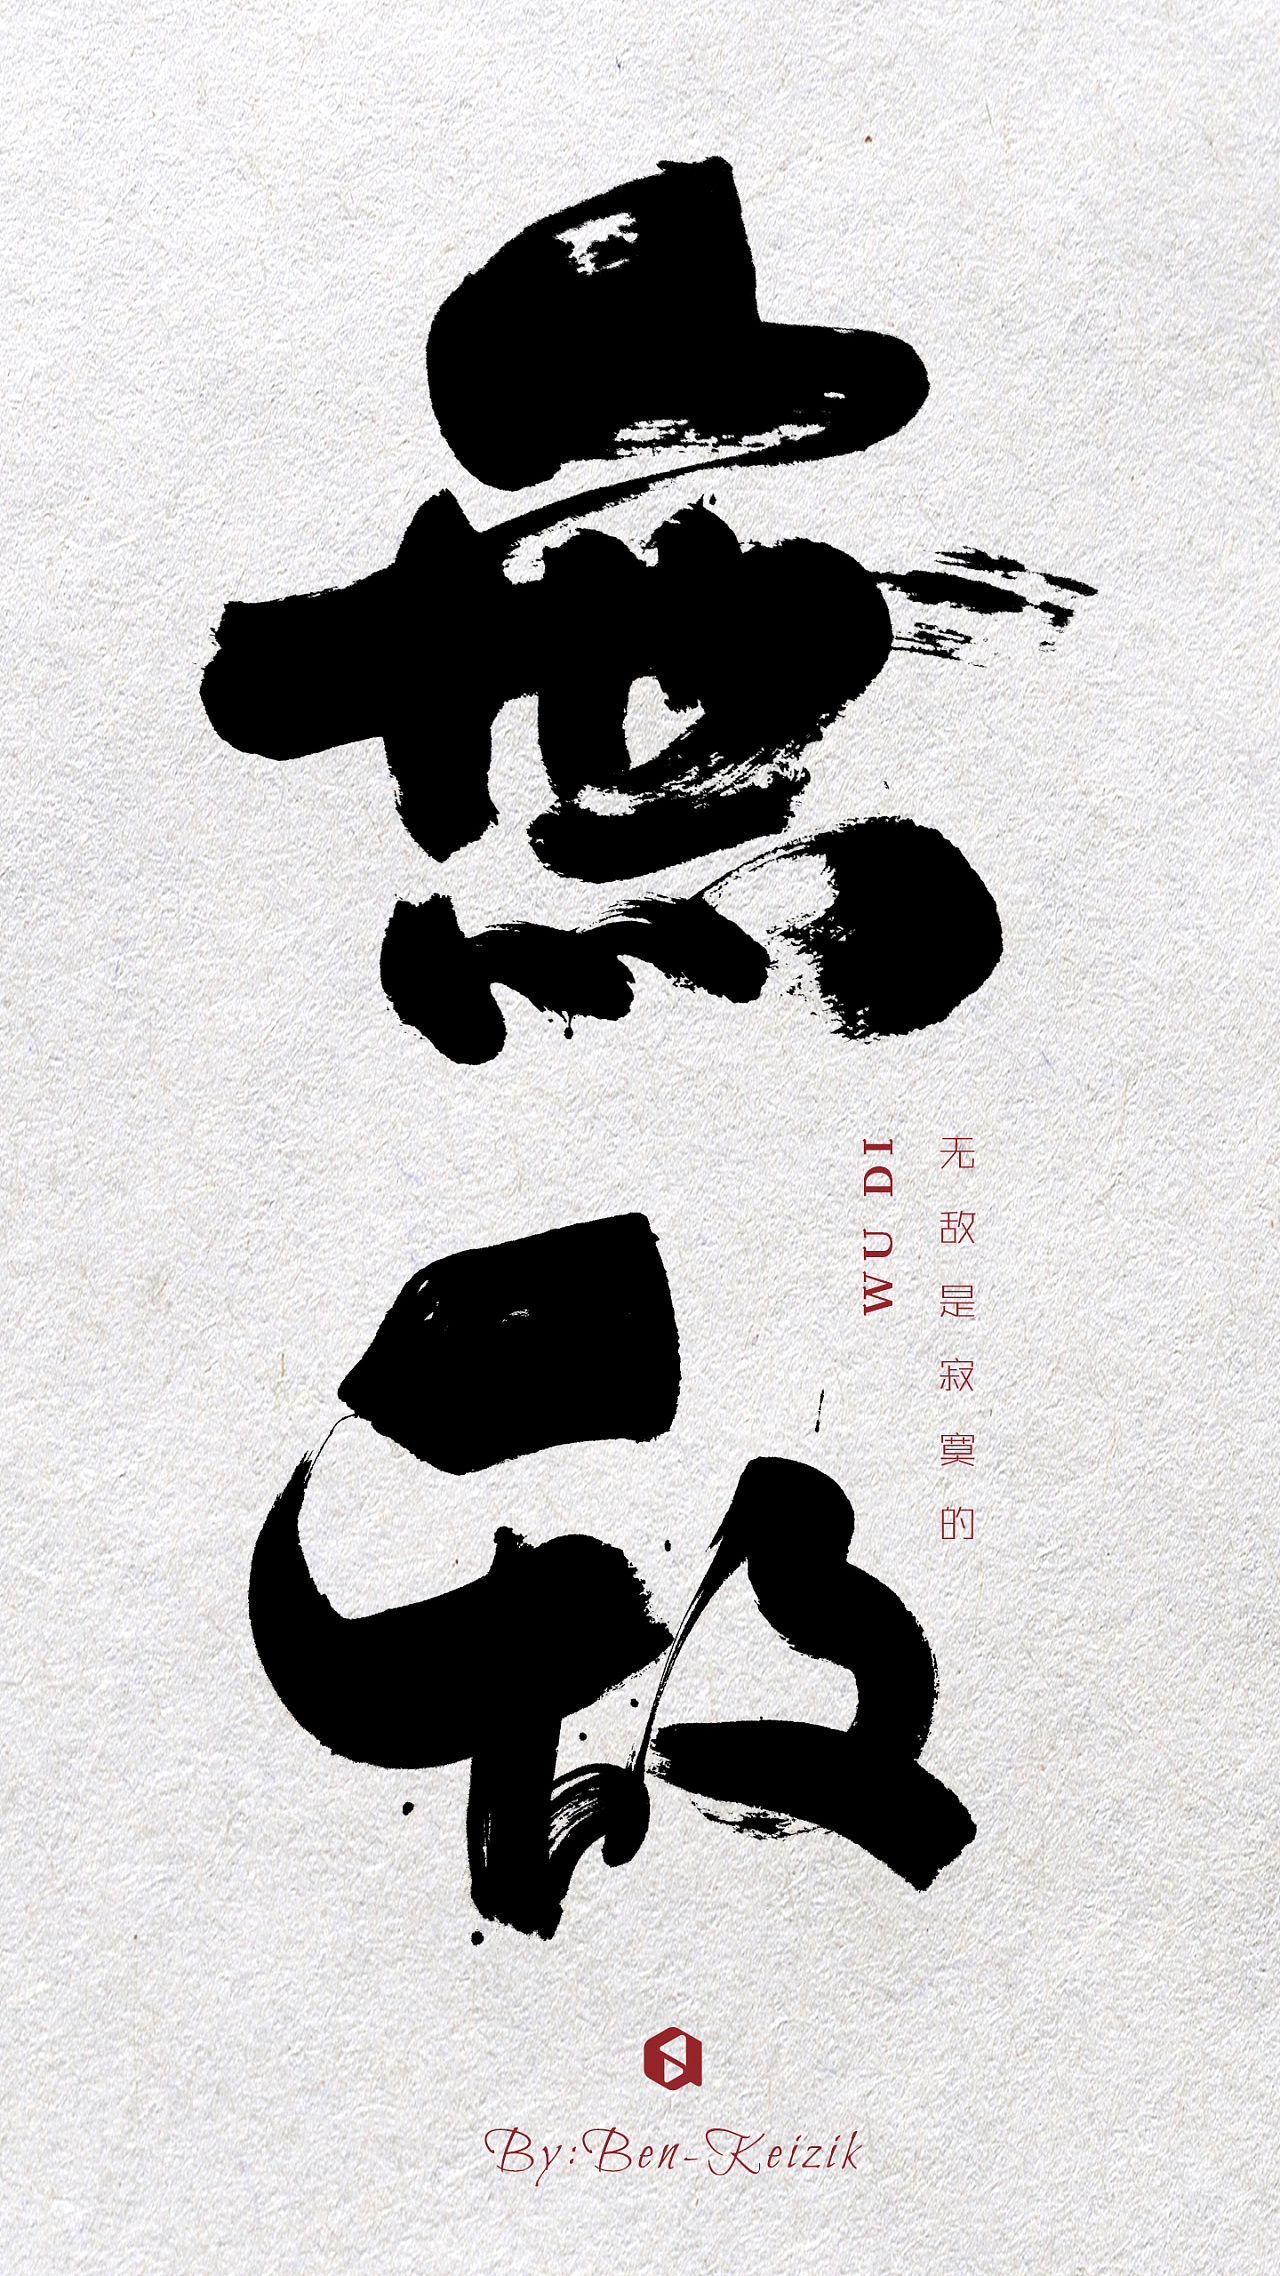 無敌
无敌是寂寞的
WU DI
By:Ben-Keizik